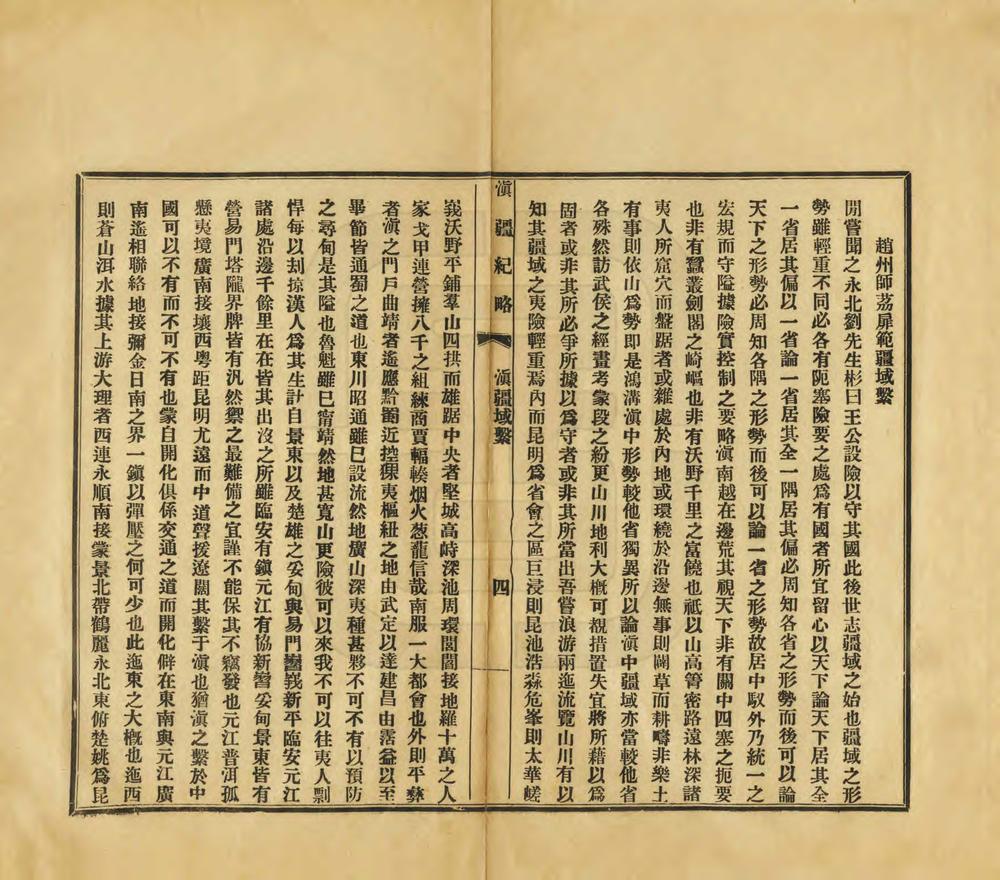 趙州師荔扉範疆域繫
閒嘗聞之永北劉先生彬曰王公設險以守其國此後世志疆域之始也疆域之形
勢雖輕重不同必各有阨塞險要之處爲有國者所宜留心以天下論天下居其全
一省居其偏以一省論一省居其全一隅居其偏必周知各省之形勢而後可以論
天下之形勢必周知各隅之形勢而後可以論一省之形勢故居中馭外乃統一之
宏規而守隘據險實控制之要略滇南越在邊荒其視天下非有關中四塞之扼要
也非有蠶叢劍閣之崎嶇也非有沃野千里之富饒也祗以山高箐密路遠林深諸
夷人所窟穴而盤踞者或雜處於內地或環繞於沿邊無事則闢草而耕疇非樂土
有事則依山爲勢即是鴻溝滇中形勢較他省獨異所以論滇中疆域亦當較他省
各殊然訪武侯之經畫考蒙段之紛更山川地利大槪可覩措置失宜將所藉以爲
固者或非其所必爭所據以爲守者或非其所當出吾嘗浪游兩迤流覽山川有以
知其疆域之夷險輕重焉內而昆明爲省會之區巨浸則昆池浩淼危峯則太華嵯
滇疆紀略
滇疆域繫
四
峩沃野平鋪羣山四拱而雄踞中央者堅城高峙深池周環閭閻接地羅十萬之人
家戈甲連營擁八千之組練商賈輻輳烟火葱蘢信哉南服一大都會也外則平彝
者滇之門戶曲靖者遙應黔蜀近控猓夷樞紐之地由武定以達建昌由霑益以至
畢節皆通蜀之道也東川昭通雖已設流然地廣山深夷種甚夥不可不有以預防
之尋甸是其隘也魯魁雖已甯靖然地甚寬山更險彼可以來我不可以往夷人剽
悍每以刦掠漢人爲其生計自景東以及楚雄之妥甸與易門嶍峩新平臨安元江
諸處沿邊千餘里在在皆其出沒之所雖臨安有鎭元江有協新嶍妥甸景東皆有
營易門塔隴界牌皆有汛然禦之最難備之宜謹不能保其不竊發也元江普洱孤
懸夷境廣南接壤西粵距昆明尤遠而中道聲援遼闊其繫于滇也猶滇之繫於中
國可以不有而不可不有也蒙自開化俱係交通之道而開化僻在東南與元江廣
南遙相聯絡地接彌金日南之界一鎭以彈壓之何可少也此迤東之大槪也迤西
則蒼山洱水據其上游大理者西連永順南接蒙景北帶鶴麗永北東俯楚姚爲昆